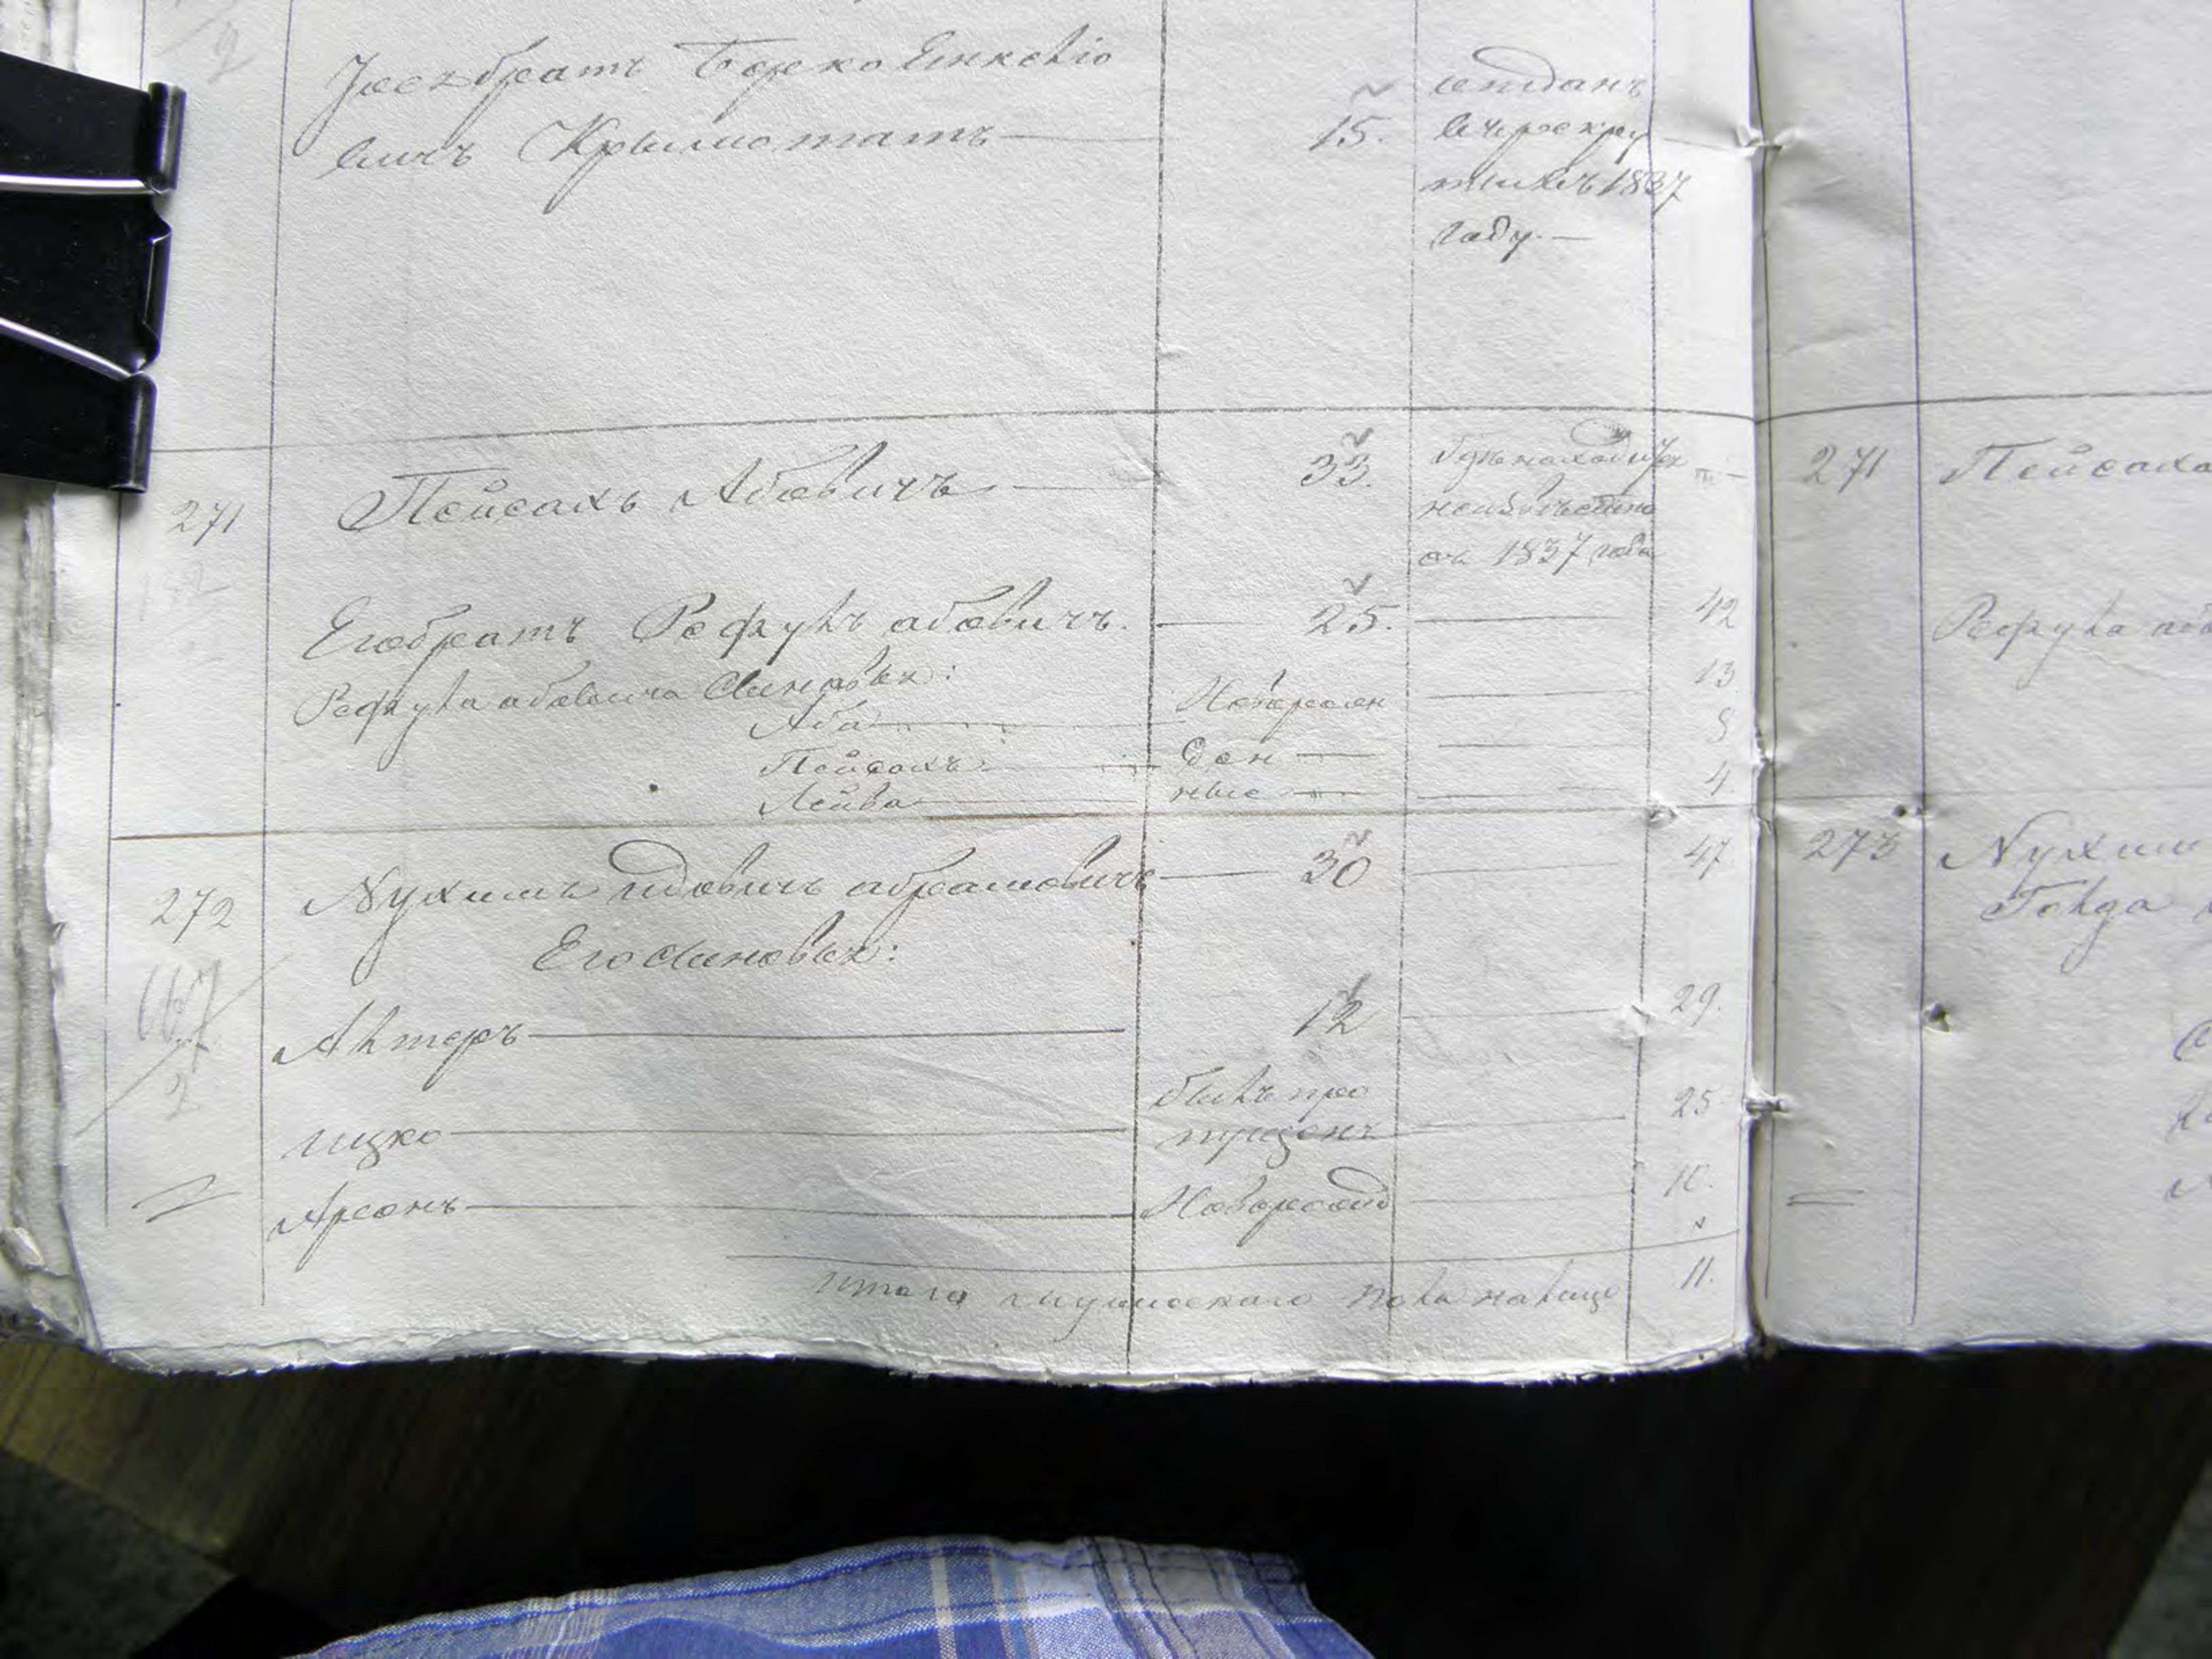 2
Зосъ братъ Берко Янкелю
вичъ Крымотатъ 15. отданъ
в рекру
ты въ 1837
году.
271 Пейсахъ Абовичъ 33. находится
неизвъстно
съ 1837 года
Его братъ Рефулъ абовичъ. 25. 42
Рефула абовича Сыновья: Новорожден 13
Аба
Пейсахъ ден 8
Лейба ные 4.
272 Нухимъ идовичъ абрамовичъ 30 47
Его Сыновья:
167
2
Алтеръ 12 29.
ицко былъ про
пущенъ 25.
Аронъ Новорожд 10.
итого мужескаго пола налицо 11.
271 Пейсаха
Рефула або
273 Нухим
Голда